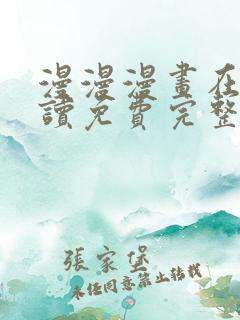 漫漫漫畫在
讀免費完整
張家堡
未经同意禁止转载